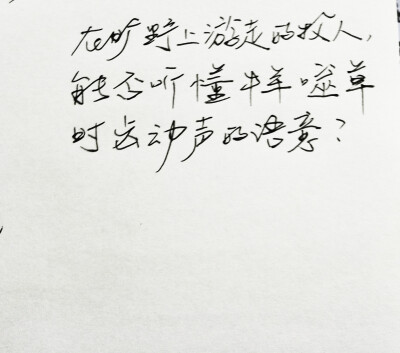 在旷野上游走的牧人，
能否听懂牛羊噬草
时齿动声的语意？